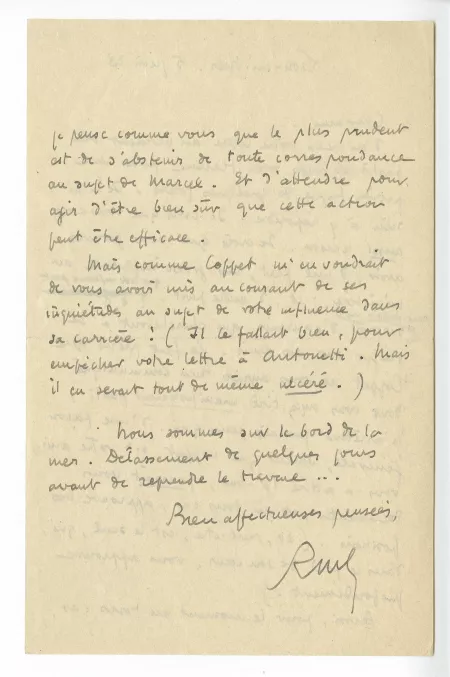 je pense comme vous que le plus prudent
est de s'abstenir de toute correspondance
au sujet de Marcel. Et d'attendre pour
agir d'être bien sûr que cette action
peut être efficace.
Mais comme Coppet m'en voudrait
de vous avoir mis au courant de ses
inquiétudes au sujet de votre influence dans
sa carrière ! (Il le fallait bien, pour
empêcher votre lettre à Antonetti. Mais
il en serait tout de même ulcéré.)
Nous sommes sur le bord de la
mer. Délassement de quelques jours
avant de reprendre le travail ...
Bien affectueuses pensées,